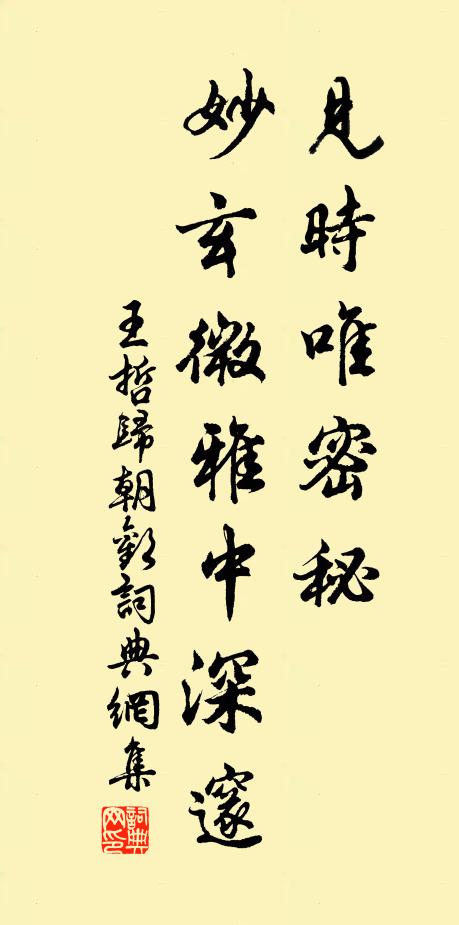 見時唯密秘
妙玄微雅中深邃
王哲歸朝歡詞典網集
詞典网印